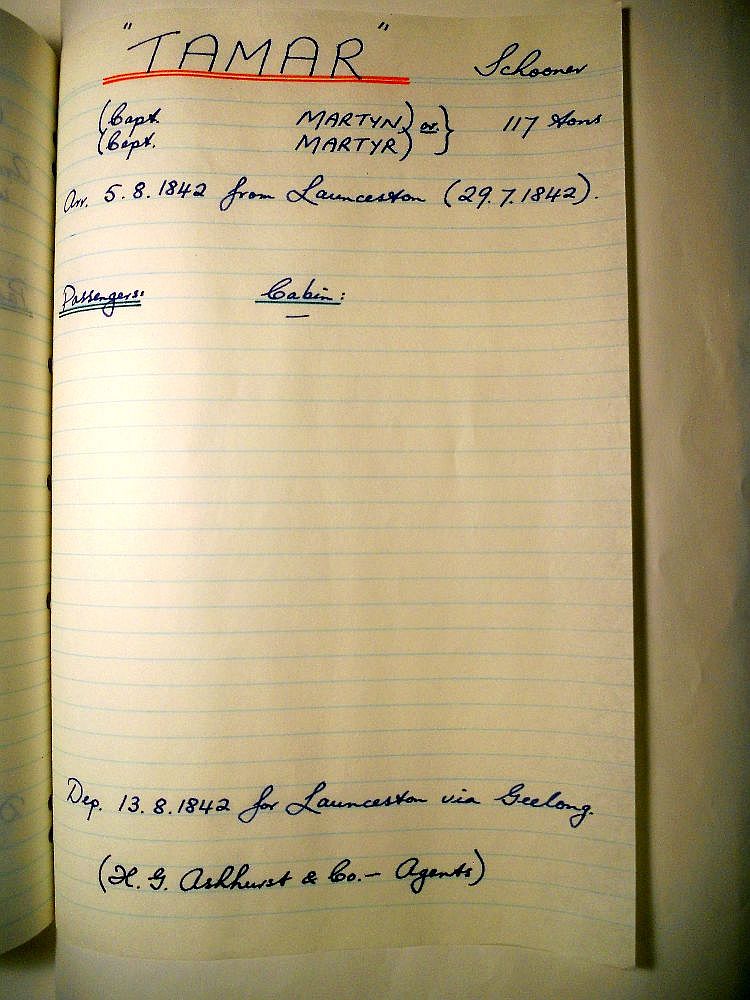 "TAMAR" Schooner
(Capt. MARTYN) or } 117 tons
(Capt. MARTYR)
Arr. 5.8.1842 from Launceston (29.7.1842).
Passengers: Cabin:
—
Dep. 13.8.1842 for Launceston via Geelong.
(H. G. Ashhurst & Co. — Agents)